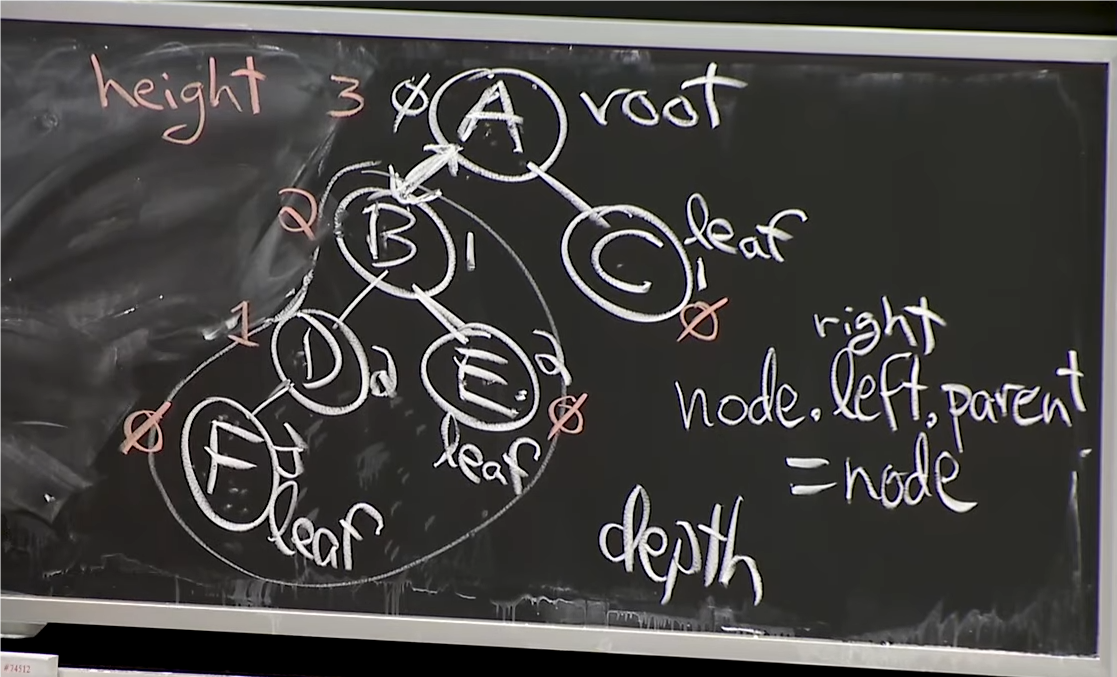 height 3 ∅ A root
2 B 1 C leaf 1 ∅
1 D 2 E 2 ∅ leaf
∅ F 3 leaf
right
node.left.parent
=node
depth
#34512